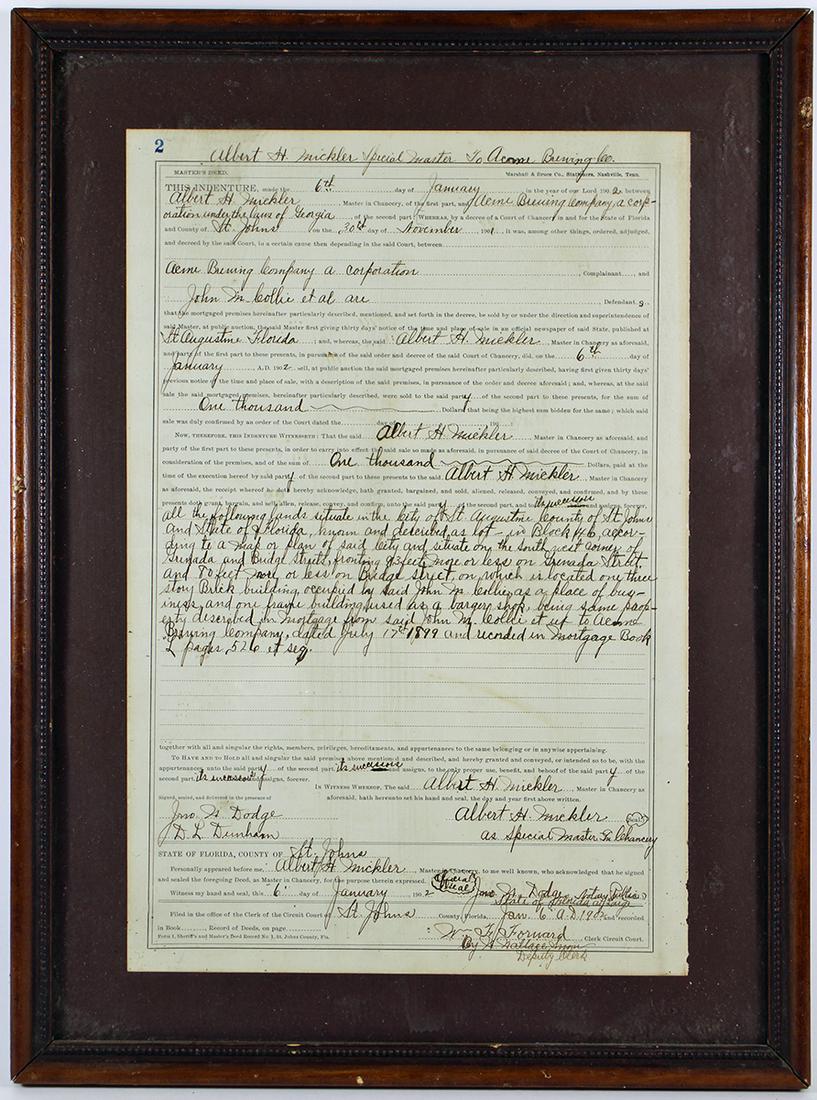 2
Albert H. Mickler Special Master To Acme Brewing Co.
MASTER'S DEED. Marshall & Bruce Co., Stationers, Nashville, Tenn.
THIS INDENTURE, made the 6th day of January in the year of our Lord 1902 between
Albert H. Mickler, Master in Chancery, of the first part, and Acme Brewing Company, a corp-
oration under the laws of Georgia, of the second part: WHEREAS, by a decree of a Court of Chancery, in and for the State of Florida
and County of St. Johns on the 30th day of November, 1901, it was, among other things, ordered, adjudged,
and decreed by the said Court, in a certain cause then depending in the said Court, between
Acme Brewing Company a corporation, Complainant, and
John M. Collie et al are, Defendants.
that the mortgaged premises hereinafter particularly described, mentioned, and set forth in the decree, be sold by or under the direction and superintendence of
said Master, at public auction, the said Master first giving thirty days' notice of the time and place of sale in an official newspaper of said State, published at
St Augustine Florida; and, whereas, the said Albert H. Mickler, Master in Chancery as aforesaid,
and party of the first part to these presents, in pursuance of the said order and decree of the said Court of Chancery, did, on the 6th day of
January, A.D. 1902 sell, at public auction the said mortgaged premises hereinafter particularly described, having first given thirty days'
previous notice of the time and place of sale, with a description of the said premises, in pursuance of the order and decree aforesaid; and, whereas, at the said
sale the said mortgaged premises, hereinafter particularly described, were sold to the said party of the second part to these presents, for the sum of
One thousand Dollars that being the highest sum bidden for the same; which said
sale was duly confirmed by an order of the Court dated the day of 190
NOW, THEREFORE, THIS INDENTURE WITNESSETH: That the said Albert H. Mickler, Master in Chancery as aforesaid, and
party of the first part to these presents, in order to carry into effect the said sale so made as aforesaid, in pursuance of said decree of the Court of Chancery, in
consideration of the premises, and of the sum of One thousand Dollars, paid at the
time of the execution hereof by said party of the second part to these presents to the said Albert H. Mickler, Master in Chancery
as aforesaid, the receipt whereof he doth hereby acknowledge, hath granted, bargained, and sold, aliened, released, conveyed, and confirmed, and by these
presents doth grant, bargain, and sell, alien, release, convey, and confirm, unto the said party of the second part, and to its successors and assigns, forever,
all the following lands situate in the City of St. Augustine County of St. Johns
and State of Florida, known and described as lot - in Block 46, accor-
ding to a map or plan of said City and situate on the south west corner of
Grenada and Bridge streets, fronting 93 feet more or less on Grenada Street,
and 80 feet more or less on Bridge street, on which is located one three
story Brick building, occupied by said John M. Collie, as a place of bus-
iness, and one frame building used as a barber shop, being same prop-
erty described in mortgage from said John M. Collie et ux to Acme
Brewing Company, dated July 17th 1899 and recorded in Mortgage Book
L pages 526 et seq.
together with all and singular the rights, members, privileges, hereditaments, and appurtenances to the same belonging or in anywise appertaining.
TO HAVE AND TO HOLD all and singular the said premises above mentioned and described, and hereby granted and conveyed, or intended so to be, with the
appurtenances, unto the said party of the second part, its successors and assigns, to the only proper use, benefit, and behoof of the said party of the
second part, its successors and assigns, forever.
IN WITNESS WHEREOF, The said Albert H. Mickler, Master in Chancery as
Signed, sealed, and delivered in the presence of aforesaid, hath hereunto set his hand and seal, the day and year first above written.
Jno. W. Dodge Albert H. Mickler (Seal)
D. L. Dunham as Special Master In Chancery
STATE OF FLORIDA, COUNTY OF St. Johns
Personally appeared before me, Albert H. Mickler, Master in Chancery, to me well known, who acknowledged that he signed
and sealed the foregoing Deed, as Master in Chancery, for the purpose therein expressed.
Witness my hand and seal, this 6 day of January 1902 (Official Seal) Jno. W. Dodge Notary Public
State of Florida at large
Filed in the office of the Clerk of the Circuit Court of St. Johns County, Florida, Jan. 6 A.D. 1902 and recorded
in Book, Record of Deeds, on page Forward, Clerk Circuit Court.
Form 1, Sheriff's and Master's Deed Record No. 1, St. Johns County, Fla. By
Deputy Clerk